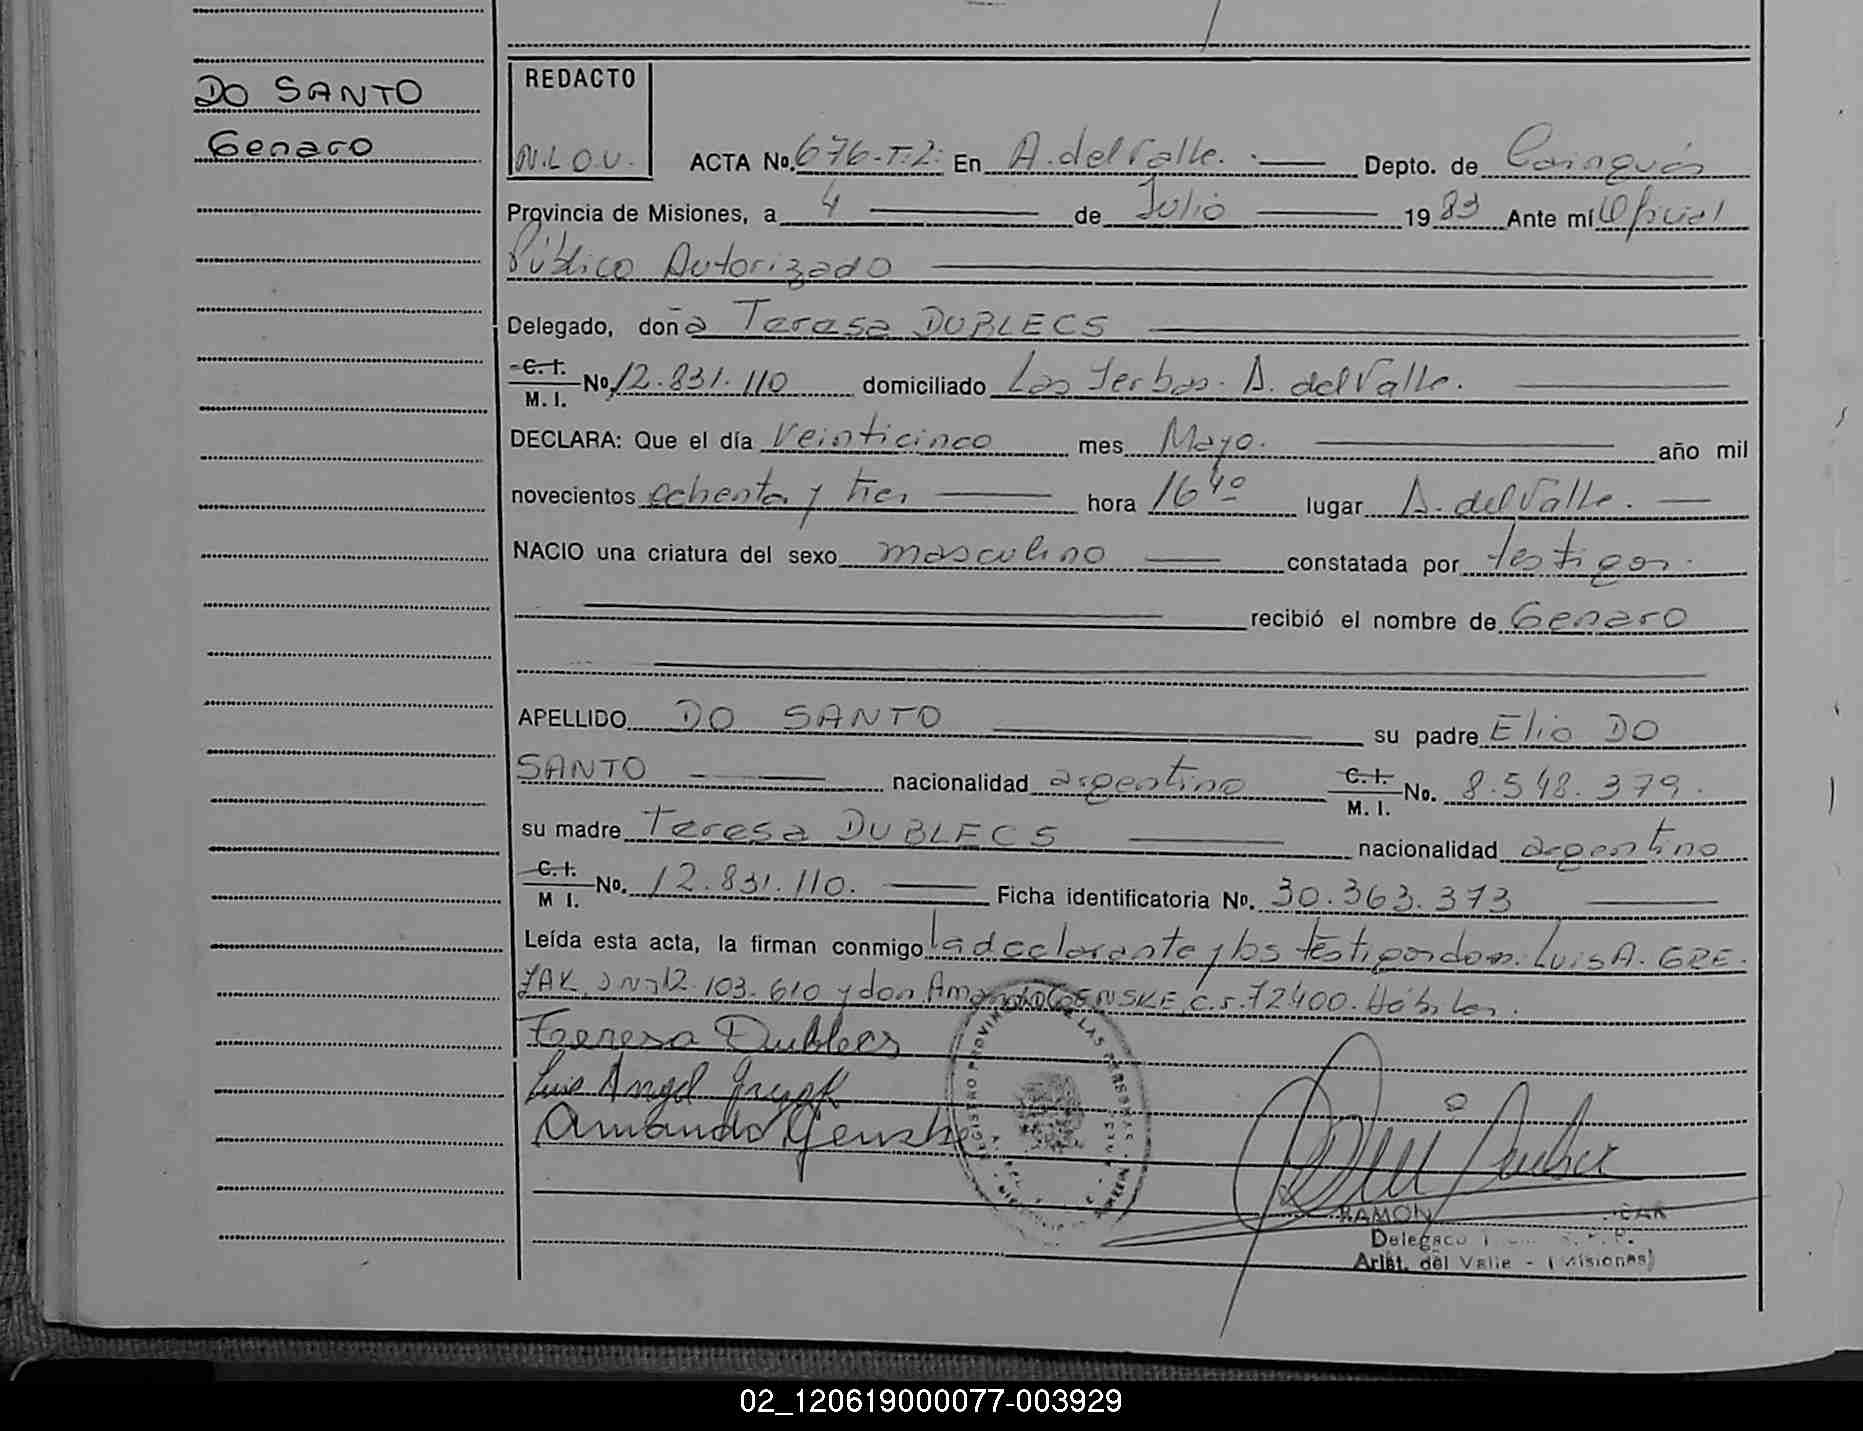 DO SANTO
Genaro
REDACTO
N.L.O.U.
ACTA No. 676-T:2: En A. del Valle. Depto. de Cainguás
Provincia de Misiones, a 4 de Julio 1983 Ante mí Oficial
Público Autorizado
Delegado, doña Teresa DUBLECS
C.I. M.I. No. 12.831.110 domiciliado Las Yerbas. A. del Valle.
DECLARA: Que el día Veinticinco mes Mayo. año mil
novecientos ochenta y tres hora 16 40 lugar A. del Valle.
NACIO una criatura del sexo masculino constatada por testigos.
recibió el nombre de Genaro
APELLIDO DO SANTO su padre Elio DO
SANTO nacionalidad argentino C.I. M.I. No. 8.548.379.
su madre Teresa DUBLECS nacionalidad argentino
C.I. M I. No. 12.831.110. Ficha identificatoria No. 30.363.373
Leída esta acta, la firman conmigo la declarante y los testigos don: Luis A. GRE-
YAK, 12.103.610 y don Amando GENSKE, C.I. 72400. Hábiles.
Teresa Dublecs
Luis Angel
Amando Genske
REGISTRO PROVINCIAL DE LAS PERSONAS
RAMON
Delegado
Arist. del Valle - (Misiones)
02_120619000077-003929